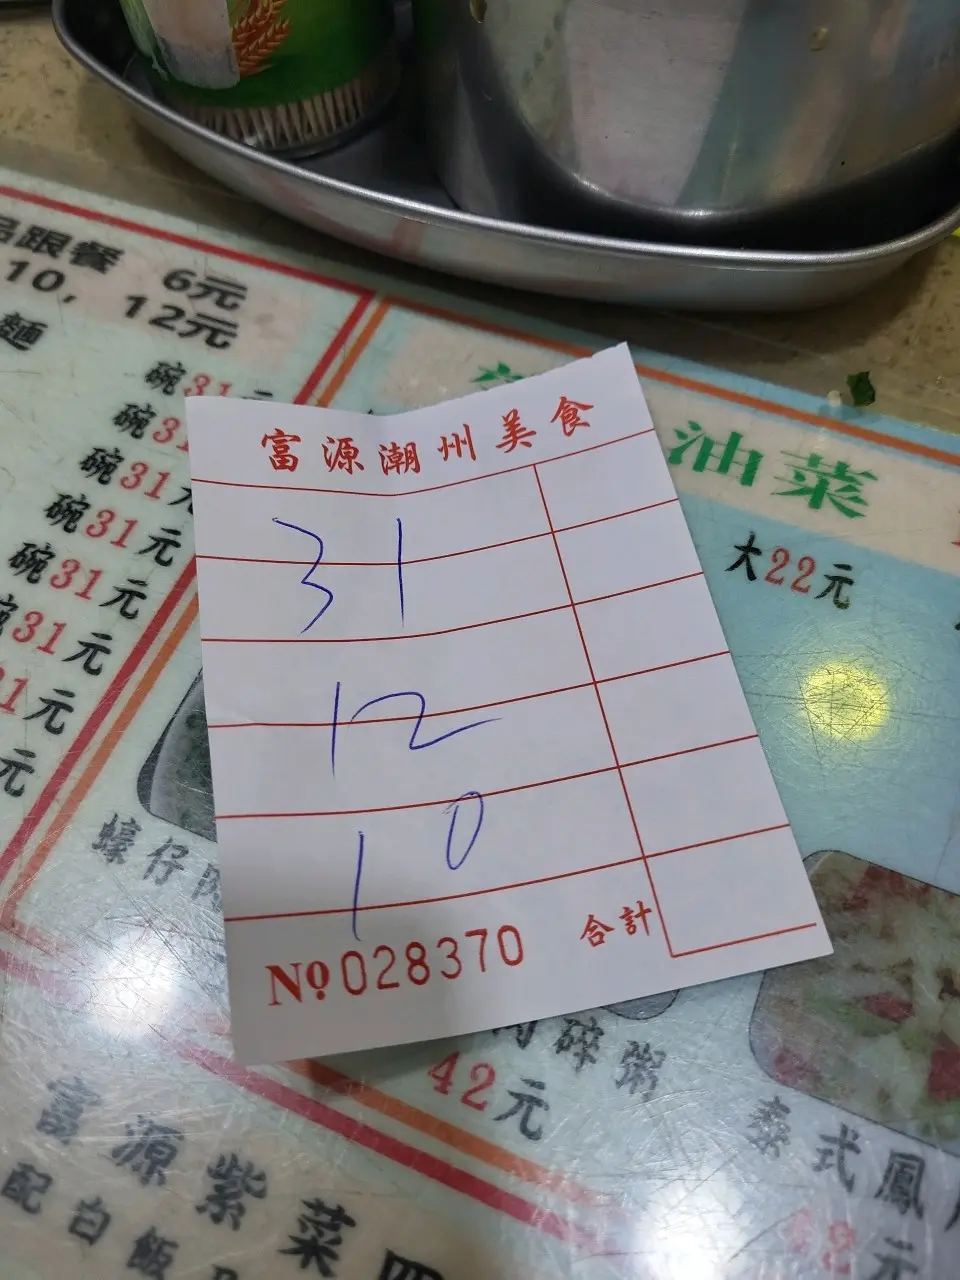 品跟餐 6元
10, 12元
麵
碗31元
碗31
碗31元
碗31元
碗31元
碗31元
31元
元
油菜
大22元
富源潮州美食
31
12
10
合計
Nº028370
蠔仔肉
肉碎粥
42元
泰式鳳
48元
富源紫菜四
配白飯